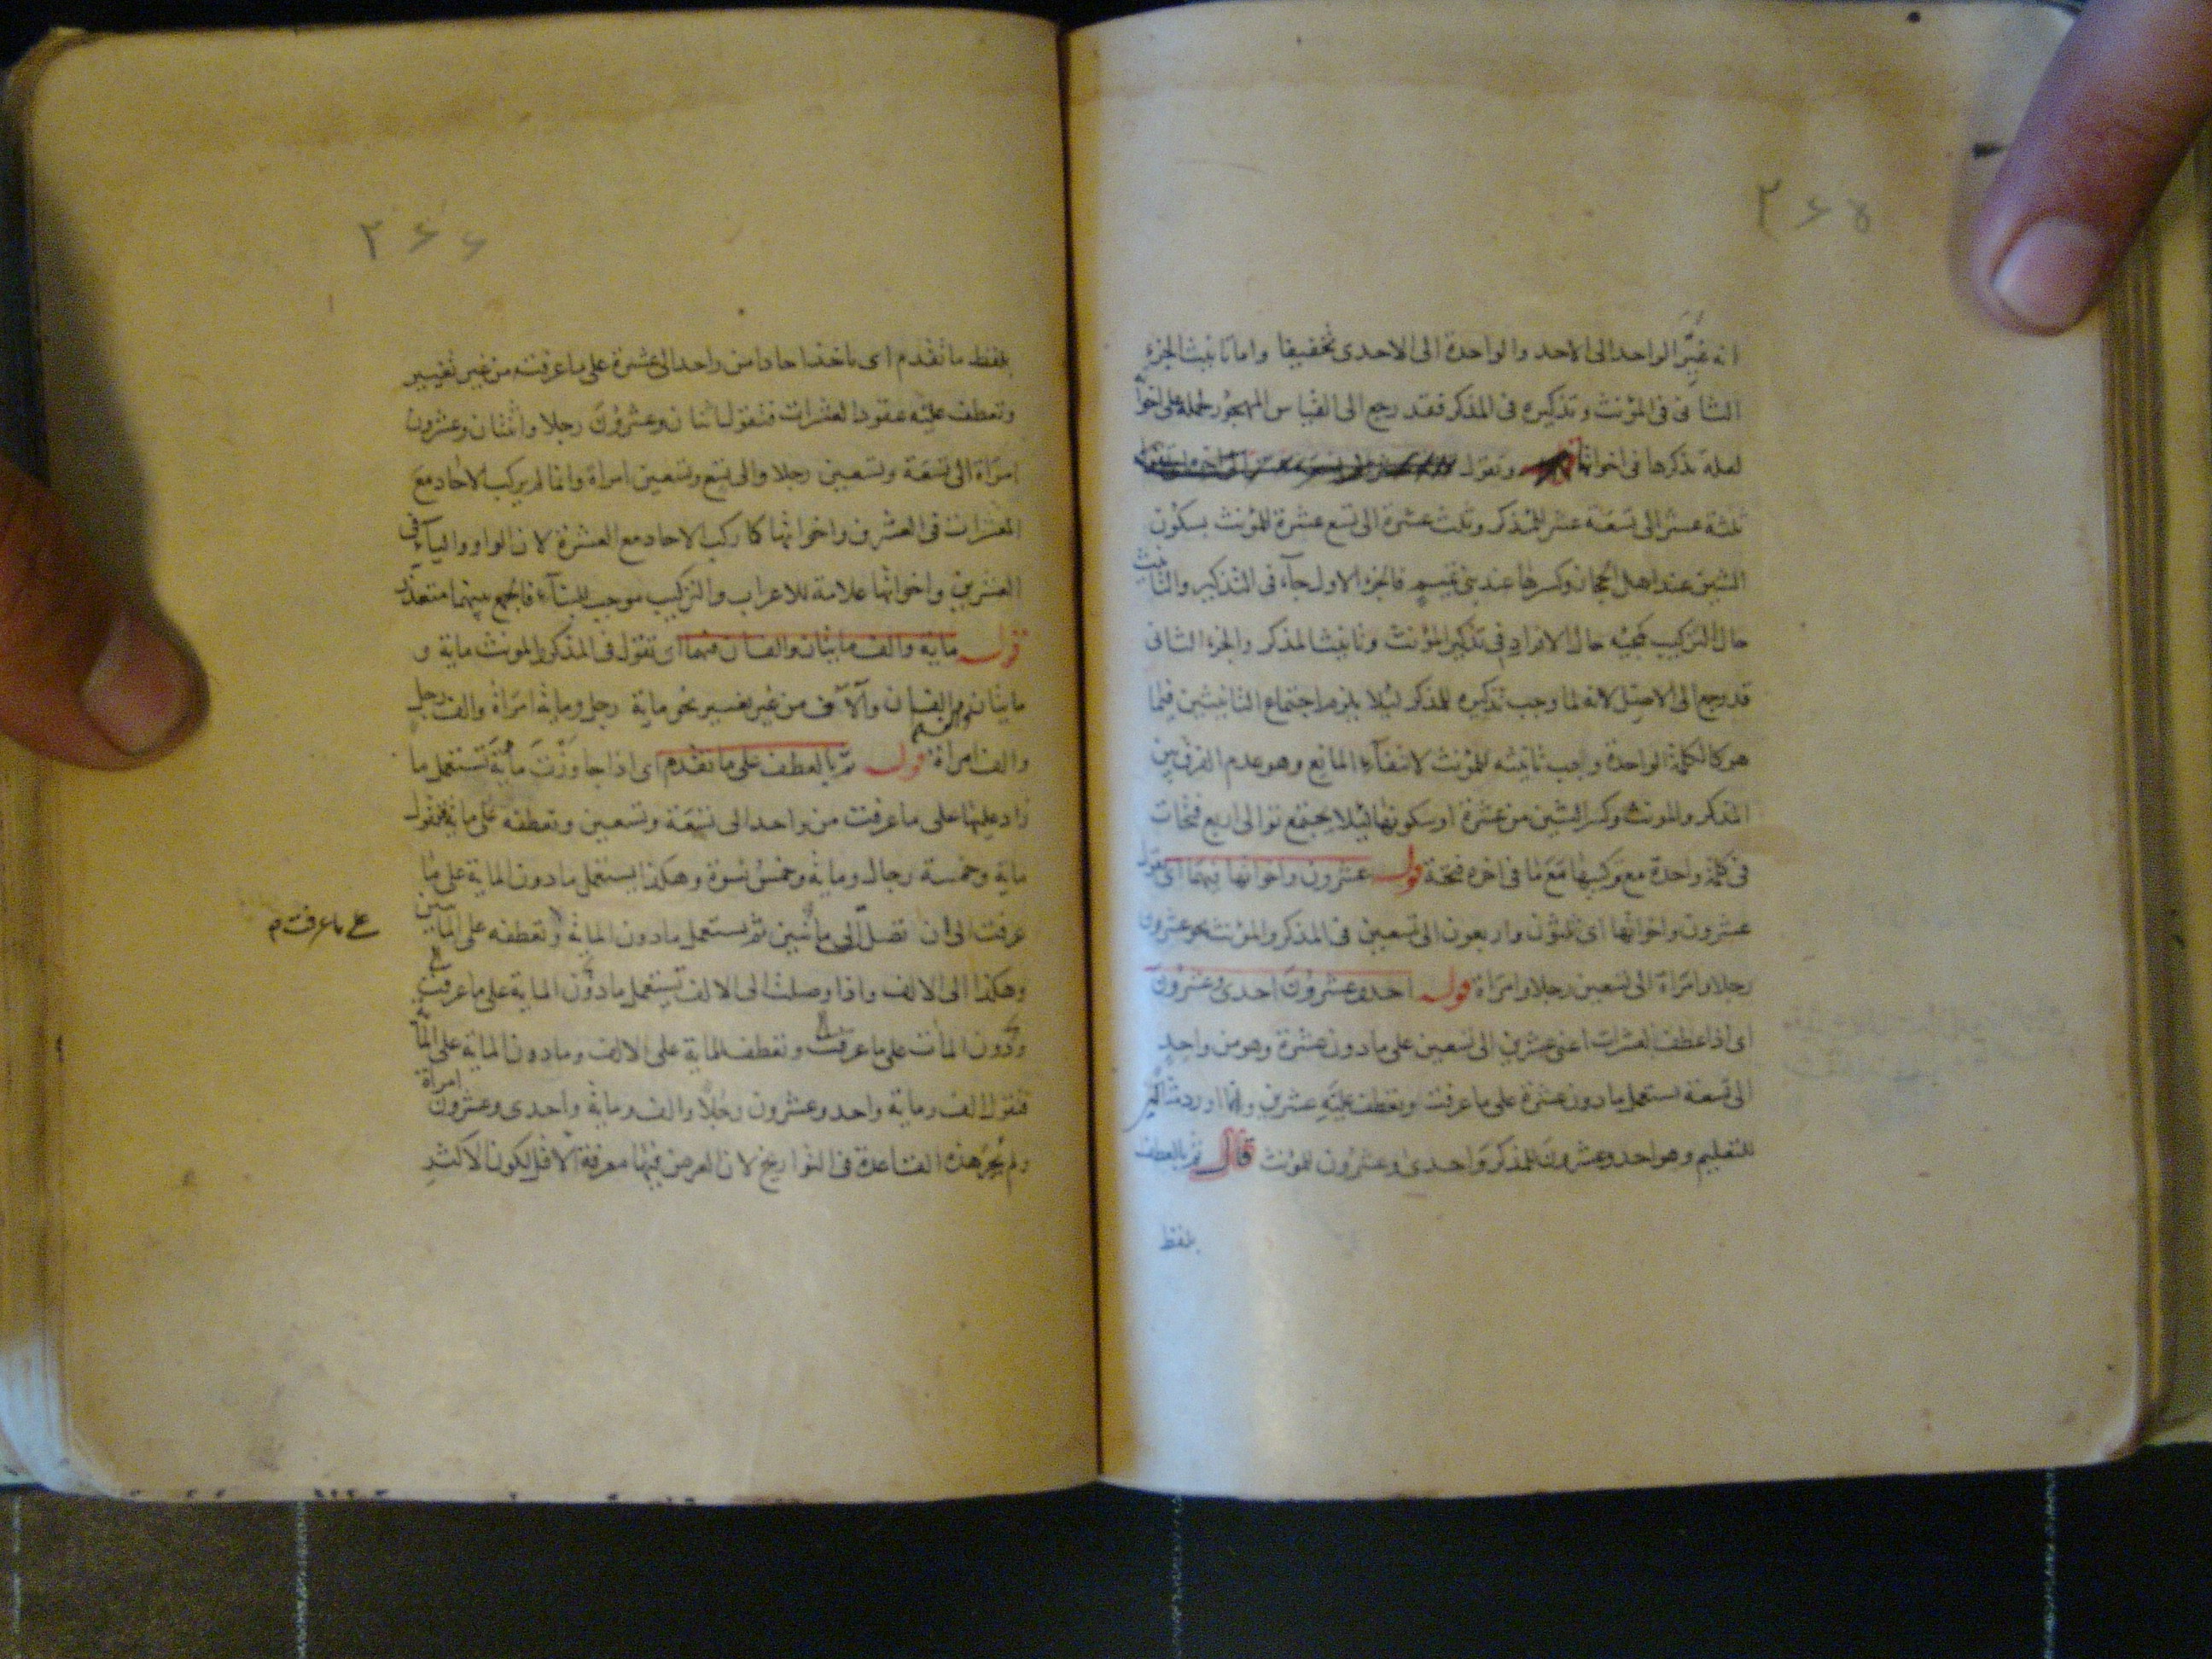 ٢٦٥
انه غيّر الواحد الى الاحد والواحدة الى الاحدى تخفيفا واما تانيث الجزء
الثانى فى المؤنث وتذكيره فى المذكر فقد رجع الى القياس المهجور لحمله على اخوا
لعلة نذكرها فى اخواتها وتقول
ثلثة عشر الى تسعة عشر للمذكر وثلث عشرة الى تسع عشرة للمؤنث بسكون
الشين عند اهل الحجاز وكسرها عند بنى تميم فالجزء الاول جآء فى التذكير والتانيث
حال التركيب كمجيئه حال الافراد فى تذكير المؤنث وتانيث المذكر والجزء الثانى
قد رجع الى الاصل لانه لما وجب تذكيره للمذكر ليلا يلزم اجتماع التانيثين فيما
هو كالكلمة الواحدة وجب تانيثه للمؤنث لانتفآء المانع وهو عدم الفرق بين
المذكر والمونث وكسر الشين من عشرة او سكونها ليلا يجتمع توالى اربع فتحات
فى كلمة واحدة مع تركيبها مع ما فى اخره فتحة قوله عشرون واخواتها فيهما اى تقول
عشرون واخواتها اى ثلثون واربعون الى تسعين فى المذكر والمؤنث نحو عشرون
رجلا وامراة الى تسعين رجلا وامراة قوله احد وعشرون احدى وعشرون
اى اذا عطف العشرات اعنى عشرين الى تسعين على ما دون عشرة وهو من واحد
الى تسعة تستعمل ما دون عشرة على ما عرفت وتعطف عليه عشرين وانما اورد
للتعليم وهو احد وعشرون للمذكر واحدى وعشرون للمؤنث قال ثم بالعطف
بلفظ
٢٦٦
بلفظ ما تقدم اى تاخذ احادا من واحد الى عشرة على ما عرفته من غير تغيير
وتعطف عليه عقود العشرات فتقول اثنان وعشرون رجلا واثنتان وعشرون
امراة الى تسعة وتسعين رجلا والى تسع وتسعين امراة وانما لم يركب الاحاد مع
العشرات فى العشرين واخواتها كما ركب الاحاد مع العشرة لان الواو واليآء فى
العشرين واخواتها علامة للاعراب والتركيب موجب للبنآء فالجمع بينهما متعذر
قوله ماية والف مايتان والفان فيهما اى تقول فى المذكر والمونث ماية و
مايتان والف والفان وآلاف من غير تغيير نحو ماية رجل وماية امراة والف رجل
والف امراة قوله ثم بالعطف على ما تقدم اى اذا جاوزت مأية تستعمل ما
زاد عليها على ما عرفت من واحد الى تسعة وتسعين وتعطفه على ماية فتقول
ماية وخمسة رجال وماية وخمس نسوة وهكذا يستعمل ما دون الماية على ما
عرفت الى ان تصل الى مائتين ثم تستعمل ما دون الماية وتعطفه على المايتين
على ما عرفت
وهكذا الى الالف واذا وصلت الى الالف تستعمل ما دون الماية على ما عرفت
ودون المأت على ما عرفت وتعطف الماية على الالف وما دون الماية على الماية
فتقول الف وماية واحد وعشرون رجلا والف وماية واحدى وعشرون امراة
ولم يجر هذه القاعدة فى التواريخ لان الغرض فيها معرفة الاقل لكون الاكثر